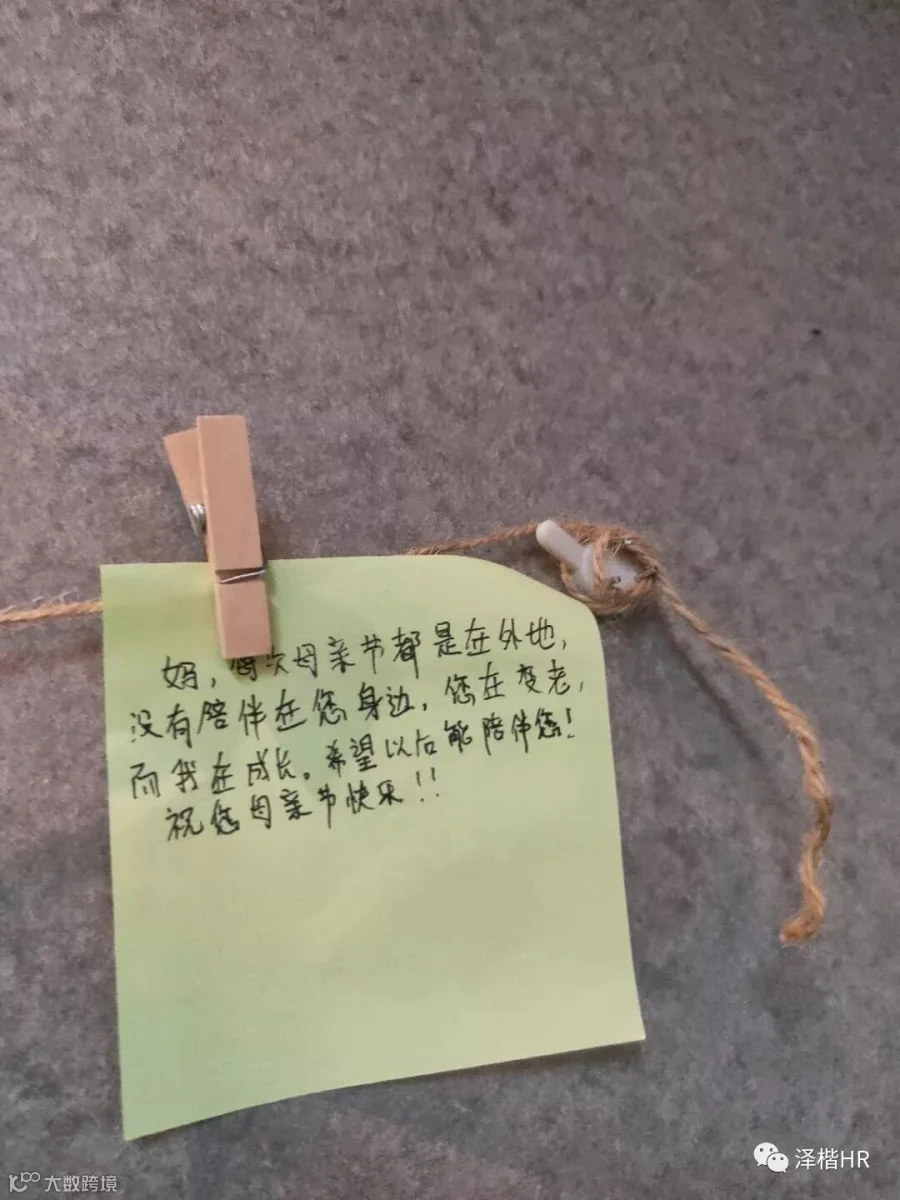 妈，每次母亲节都是在外地，
没有陪伴在您身边，您在变老，
而我在成长。希望以后能陪伴您！
祝您母亲节快乐！！
泽楷HR
大数跨境